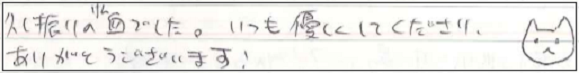 久し振りの面でした。いつも優しくしてくださり、
ありがとうございます!